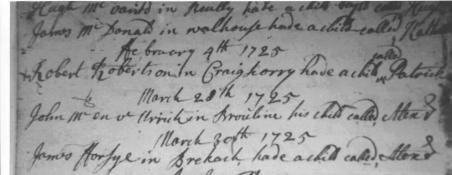 Hugh Mc in Reully hade a child called Hugh
James Mc Donald in walhouse hade a child called
Februery 4th 1725
Robert Robertson in Craigkorry hade a child called Patrick
March 28th 1725
John Mc en vc in his child called Alexr
March 30th 1725
James Horsye in Brekach hade a child called Alexr